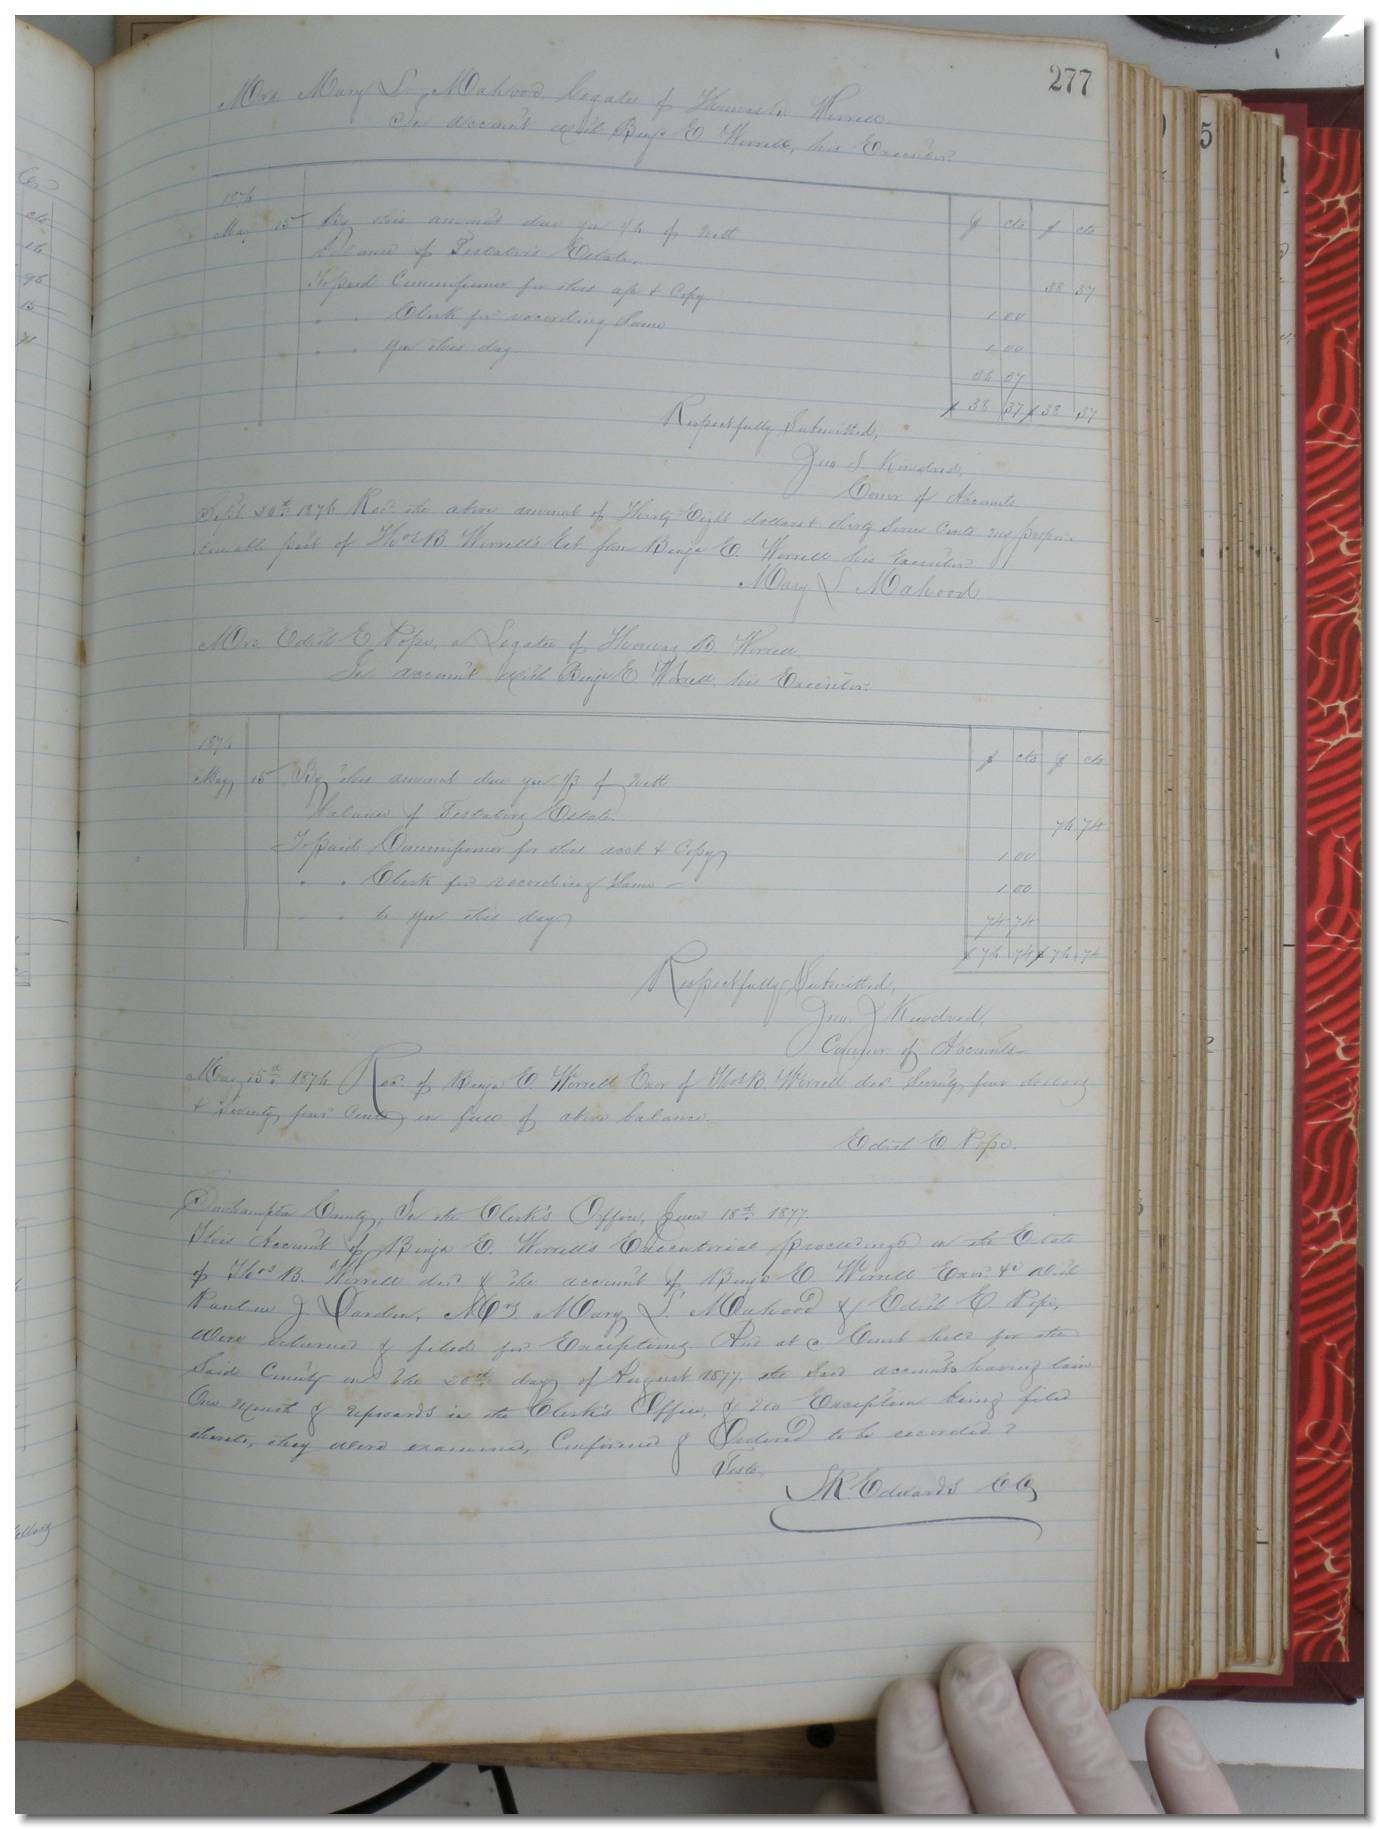 277
Mrs Mary L. Mahood, Legatee of Thomas B. Worrell
In account with Benja E. Worrell, his Executor
1876
May 15 By this amount due you 1/6 of nett
balance of Testators Estate. 38 37
To paid Commissioner for this a/c & Copy 1 00
" " Clerk for recording Same 1 00
" " you this day 36 37
$ 38 37 $ 38 37
Respectfully Submitted,
Jno J. Kindred,
Comr of Accounts
Sept 20th 1876 Recd the above amount of Thirty Eight dollars & thirty Seven Cents my propor-
tionable part of Thos B Worrell's Est from Benja E. Worrell his Executor
Mary L Mahood
Mrs Edith E Pope, a Legatee of Thomas B. Worrell
In account with Benja E Worrell, his Executor
1876
$ cts $ cts
May 15 By this amount due you 1/3 of nett
balance of Testators Estate 76 74
To paid Commissioner for this acct & Copy 1 00
" " Clerk for recording Same 1 00
" " to you this day 74 74
$ 76 74 $ 76 74
Respectfully Submitted,
Jno. J Kindred,
Commr. of Accounts
May 15th 1876 Recd of Benja E Worrell Exor of Thos B Worrell decd Seventy four dollars
& Seventy four Cents in full of above balance.
Edith E. Pope.
Southampton County, In the Clerk's Office, June 18th 1877
This Account of Benja E. Worrell's Executorial proceedings on the Estate
of Thos B. Worrell decd & the account of Benja E. Worrell Exor &c with
J Darden, Mrs Mary L. Mahood & Edith E. Pope,
were returned & filed for Exceptions And at a Court held for the
Said County on the 20th day of August 1877, the Said accounts having lain
One Month & upwards in the Clerk's Office, & no Exception being filed
thereto, they were examined, Confirmed & Ordered to be recorded
Teste,
Edwards CC